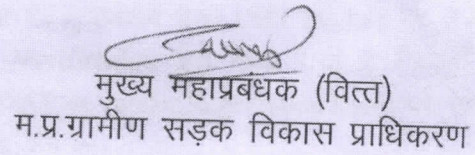 मुख्य महाप्रबंधक (वित्त)
म.प्र.ग्रामीण सड़क विकास प्राधिकरण